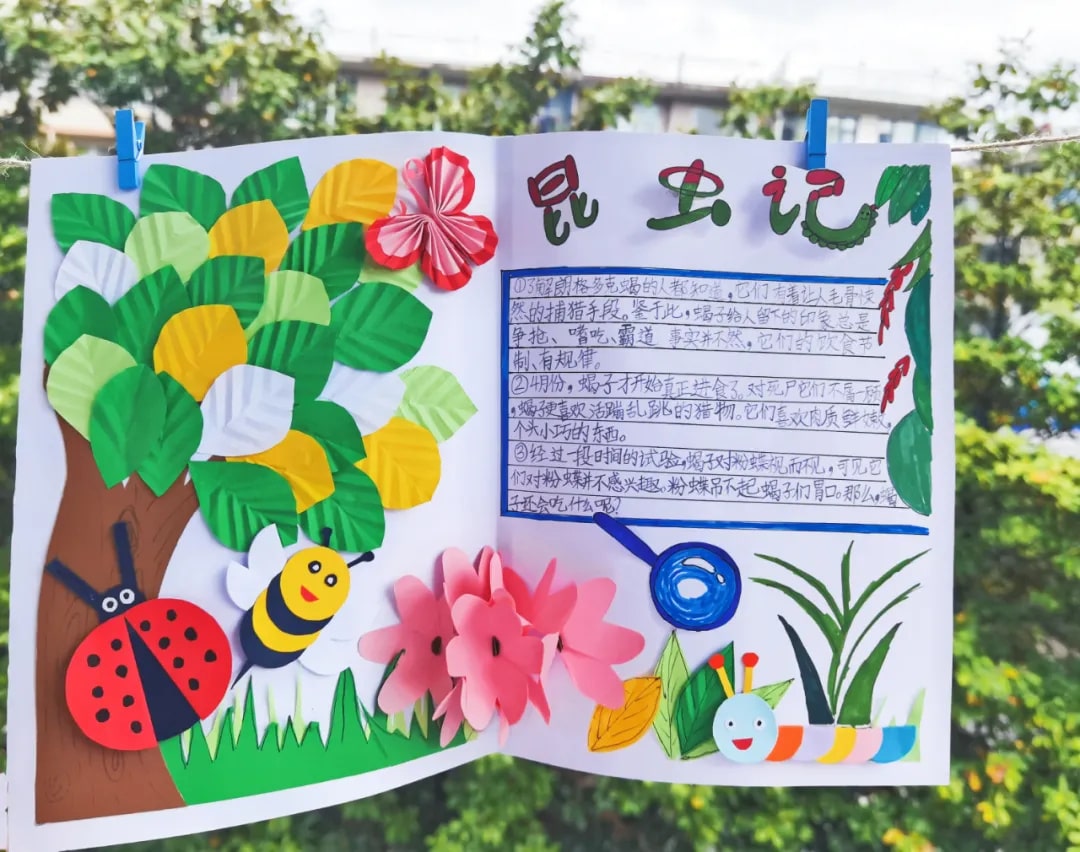 昆虫记
①了解朗格多克蝎的人都知道，它们有着让人毛骨悚
然的捕猎手段。鉴于此，蝎子给人留下的印象总是
争抢、嗜吃、霸道 事实并不然，它们的饮食节
制、有规律。
②4月份，蝎子才开始真正进食了。对死尸它们不屑一顾
，蝎子更喜欢活蹦乱跳的猎物。它们喜欢肉质鲜嫩，
个头小巧的东西。
③经过一段时间的试验，蝎子对粉蝶视而不见，可见它
们对粉蝶并不感兴趣。粉蝶吊不起蝎子们胃口。那么，蝎
子还会吃什么呢？